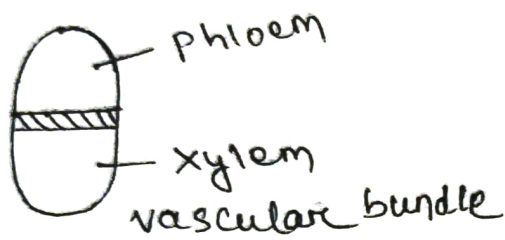 phloem
xylem
vascular bundle